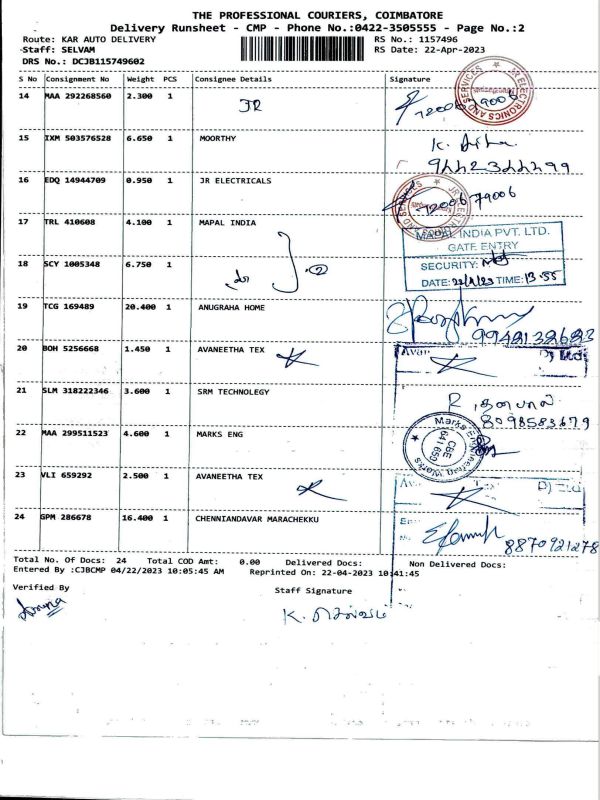 THE PROFESSIONAL COURIERS, COIMBATORE
Delivery Runsheet - CMP - Phone No.:0422-3505555 - Page No.:2
Route: KAR AUTO DELIVERY RS No.: 1157496
Staff: SELVAM RS Date: 22-Apr-2023
DRS No.: DCJB115749602
S No Consignment No Weight PCS Consignee Details Signature
14 MAA 292268560 2.300 1 JR 72006 79006
15 IXM 503576528 6.650 1 MOORTHY K.
16 EDQ 14944709 0.950 1 JR ELECTRICALS 72006 79006
17 TRL 410608 4.100 1 MAPAL INDIA
MAPAL INDIA PVT. LTD.
GATE ENTRY
18 SCY 1005348 6.750 1 do 2
SECURITY:
DATE: TIME: 13.55
19 TCG 169489 20.400 1 ANUGRAHA HOME
20 BOH 5256668 1.450 1 AVANEETHA TEX
21 SLM 318222346 3.600 1 SRM TECHNOLEGY
R. தனபால்
8098583679
22 MAA 299511523 4.600 1 MARKS ENG
Marks Engineering Works
CBE
641 659
23 VLI 659292 2.500 1 AVANEETHA TEX
24 GPM 286678 16.400 1 CHENNIANDAVAR MARACHEKKU
8870921278
Total No. Of Docs: 24 Total COD Amt: 0.00 Delivered Docs: Non Delivered Docs:
Entered By :CJBCMP 04/22/2023 10:05:45 AM Reprinted On: 22-04-2023 10:41:45
Verified By Staff Signature
K. செல்வம்